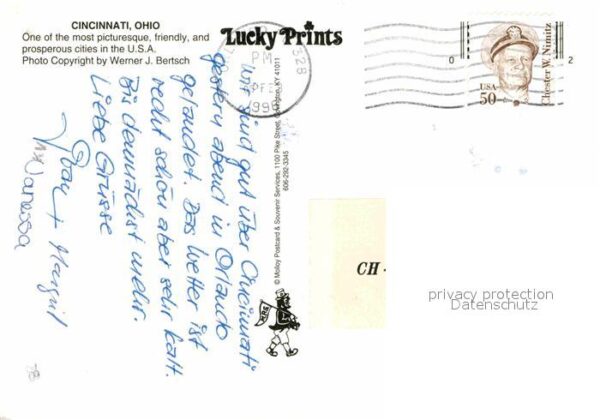 CINCINNATI, OHIO
One of the most picturesque, friendly, and
prosperous cities in the U.S.A.
Photo Copyright by Werner J. Bertsch
Lucky Prints
328
PM
199
0
2
USA
50
Chester W. Nimitz
Wir sind gut über Chincinnati
gestern abend in Orlando
gelandet. Das Wetter ist
recht schön aber sehr kalt.
Bis demnächst mehr.
Liebe Grüsse
+ Margrit
Vanessa
© Molloy Postcard & Souvenir Services, 1100 Pike Street, Covington, KY 41011
606-292-3345
KRE
CH -
privacy protection
Datenschutz